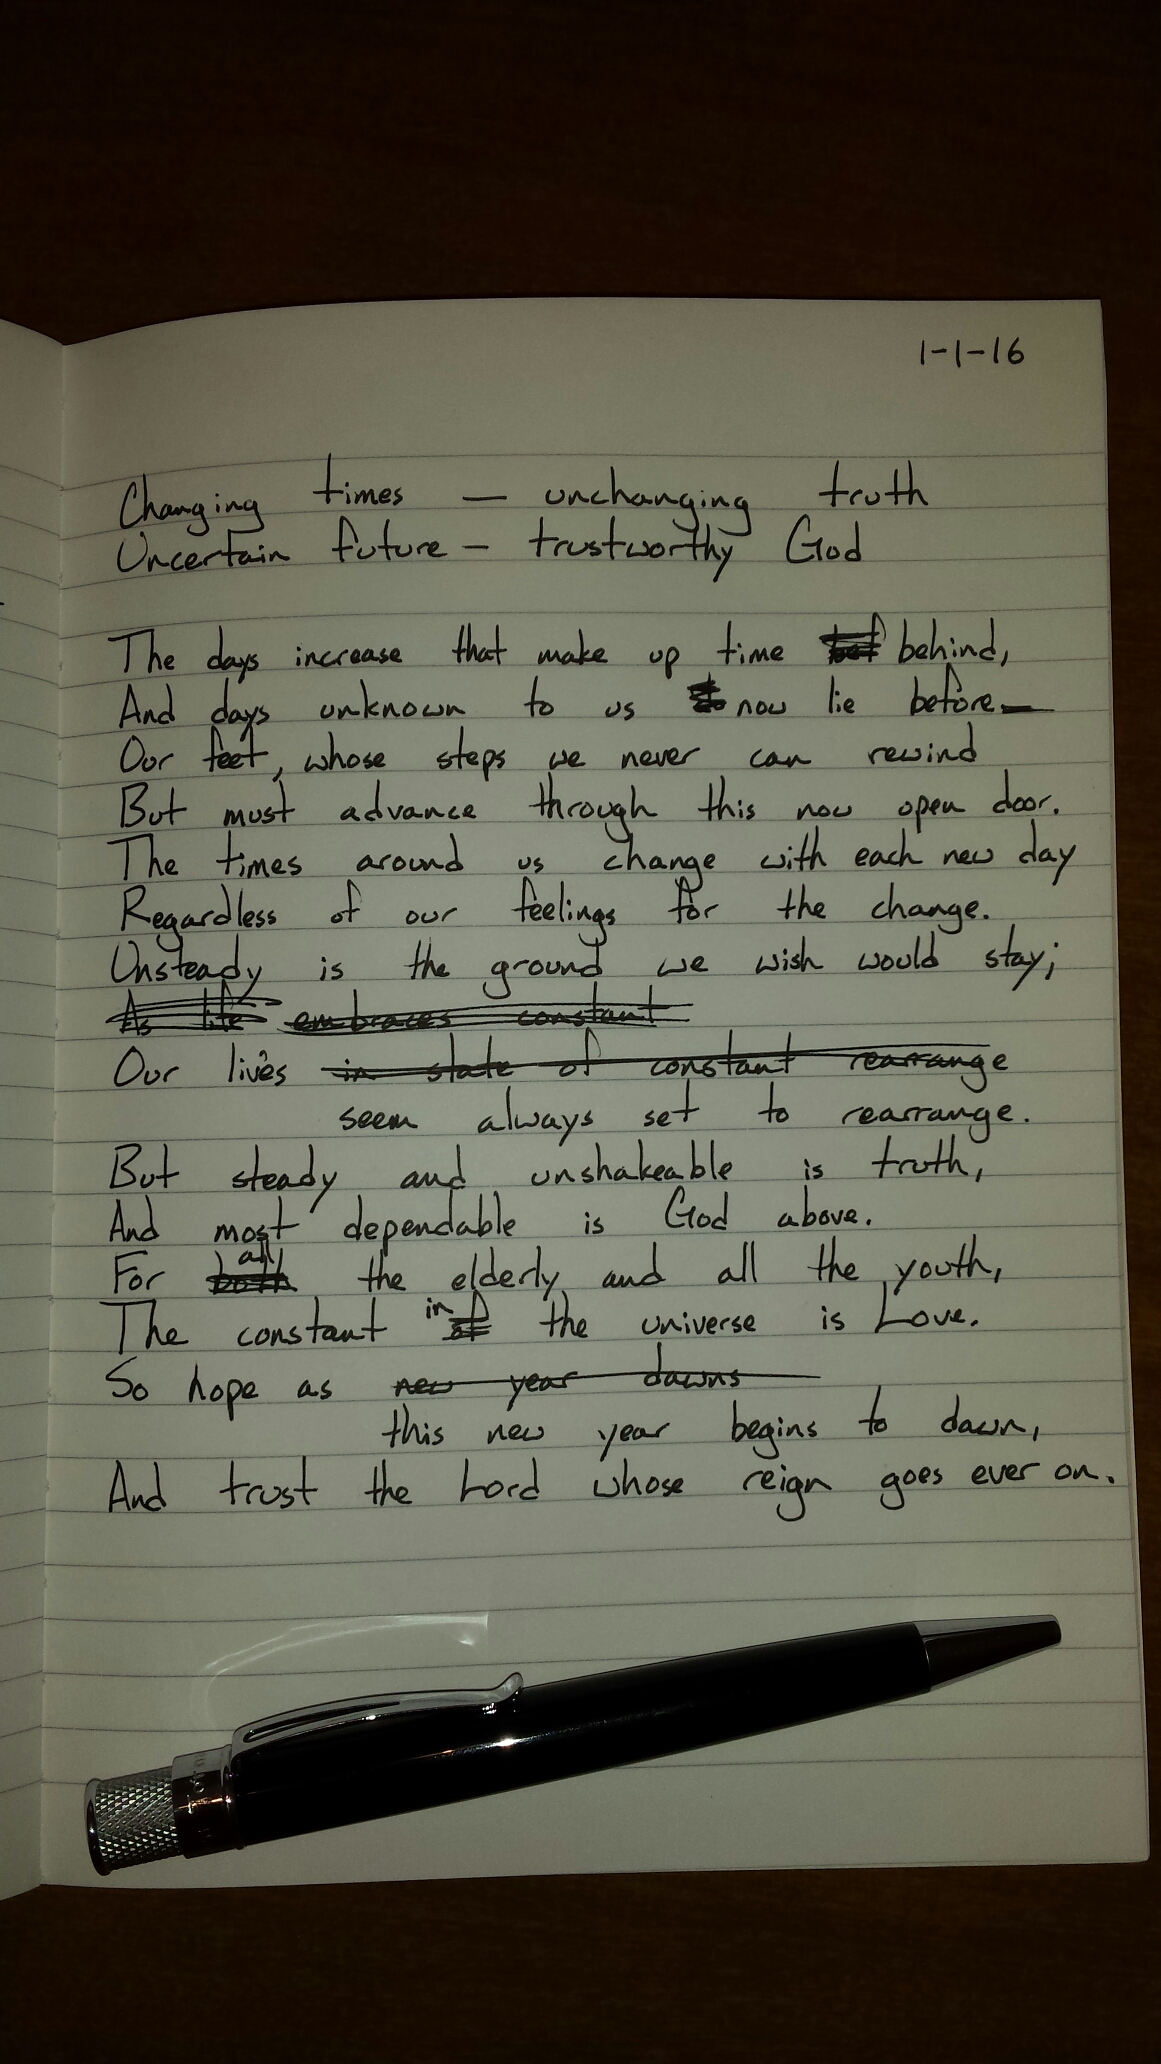 1-1-16
Changing times — unchanging truth
Uncertain future — trustworthy God
The days increase that make up time behind,
And days unknown to us now lie before—
Our feet, whose steps we never can rewind
But must advance through this now open door.
The times around us change with each new day
Regardless of our feelings for the change.
Unsteady is the ground we wish would stay;
As life embraces constant
Our lives in state of constant rearrange
seem always set to rearrange.
But steady and unshakeable is truth,
And most dependable is God above.
all
For both the elderly and all the youth,
The constant in of the universe is Love.
So hope as new year dawns
this new year begins to dawn,
And trust the Lord whose reign goes ever on.